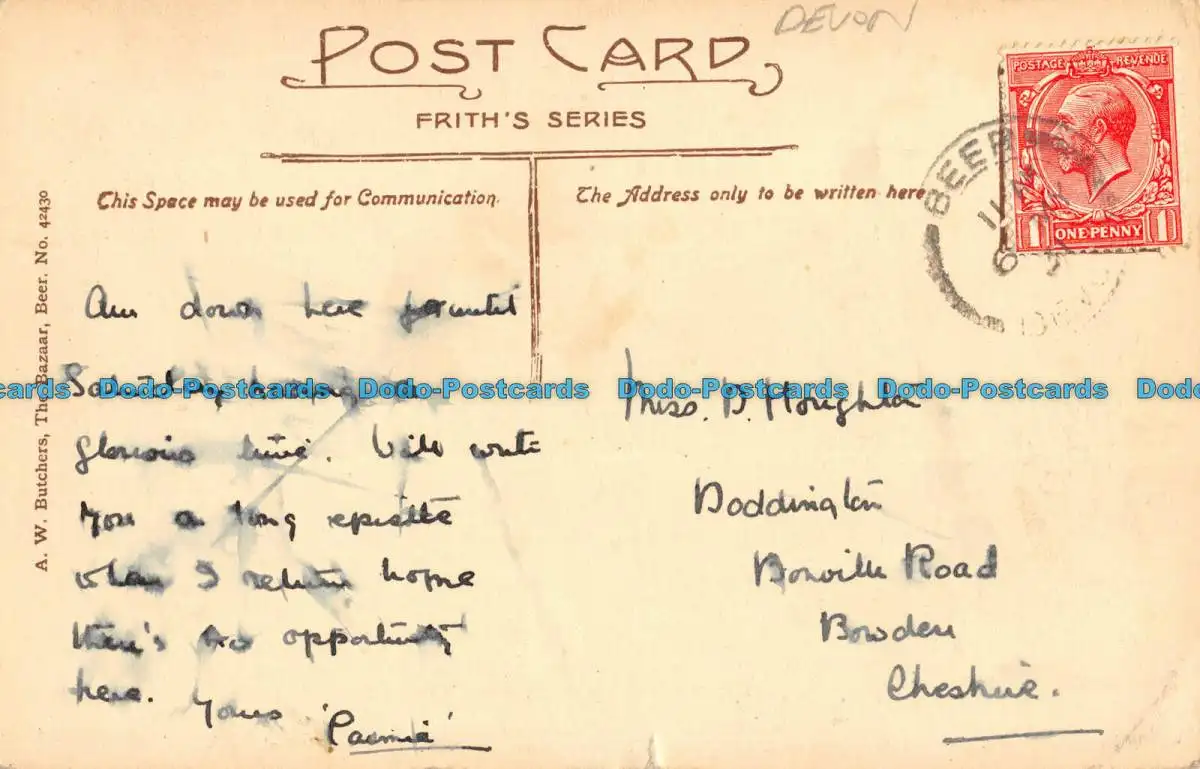 DEVON
POST CARD
FRITH'S SERIES
This Space may be used for Communication.
The Address only to be written here
POSTAGE REVENUE
ONE PENNY
1 1
BEER
11 AM
A. W. Butchers, The Bazaar, Beer. No. 42430
Am down here until
glorious time. Will write
you a long epistle
when I return home
there's no opportunity
here. Yours
Miss. D. Houghton
Doddington
Road
Bowden
Cheshire.
Dodo-Postcards Dodo-Postcards Dodo-Postcards Dodo-Postcards Dodo-Postcards